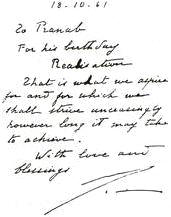 18.10.61
To Pranab
For his birthday
Realisation
That is what we aspire
for and for which we
shall strive unceasingly
however long it may take
to achieve.
With love and
blessings